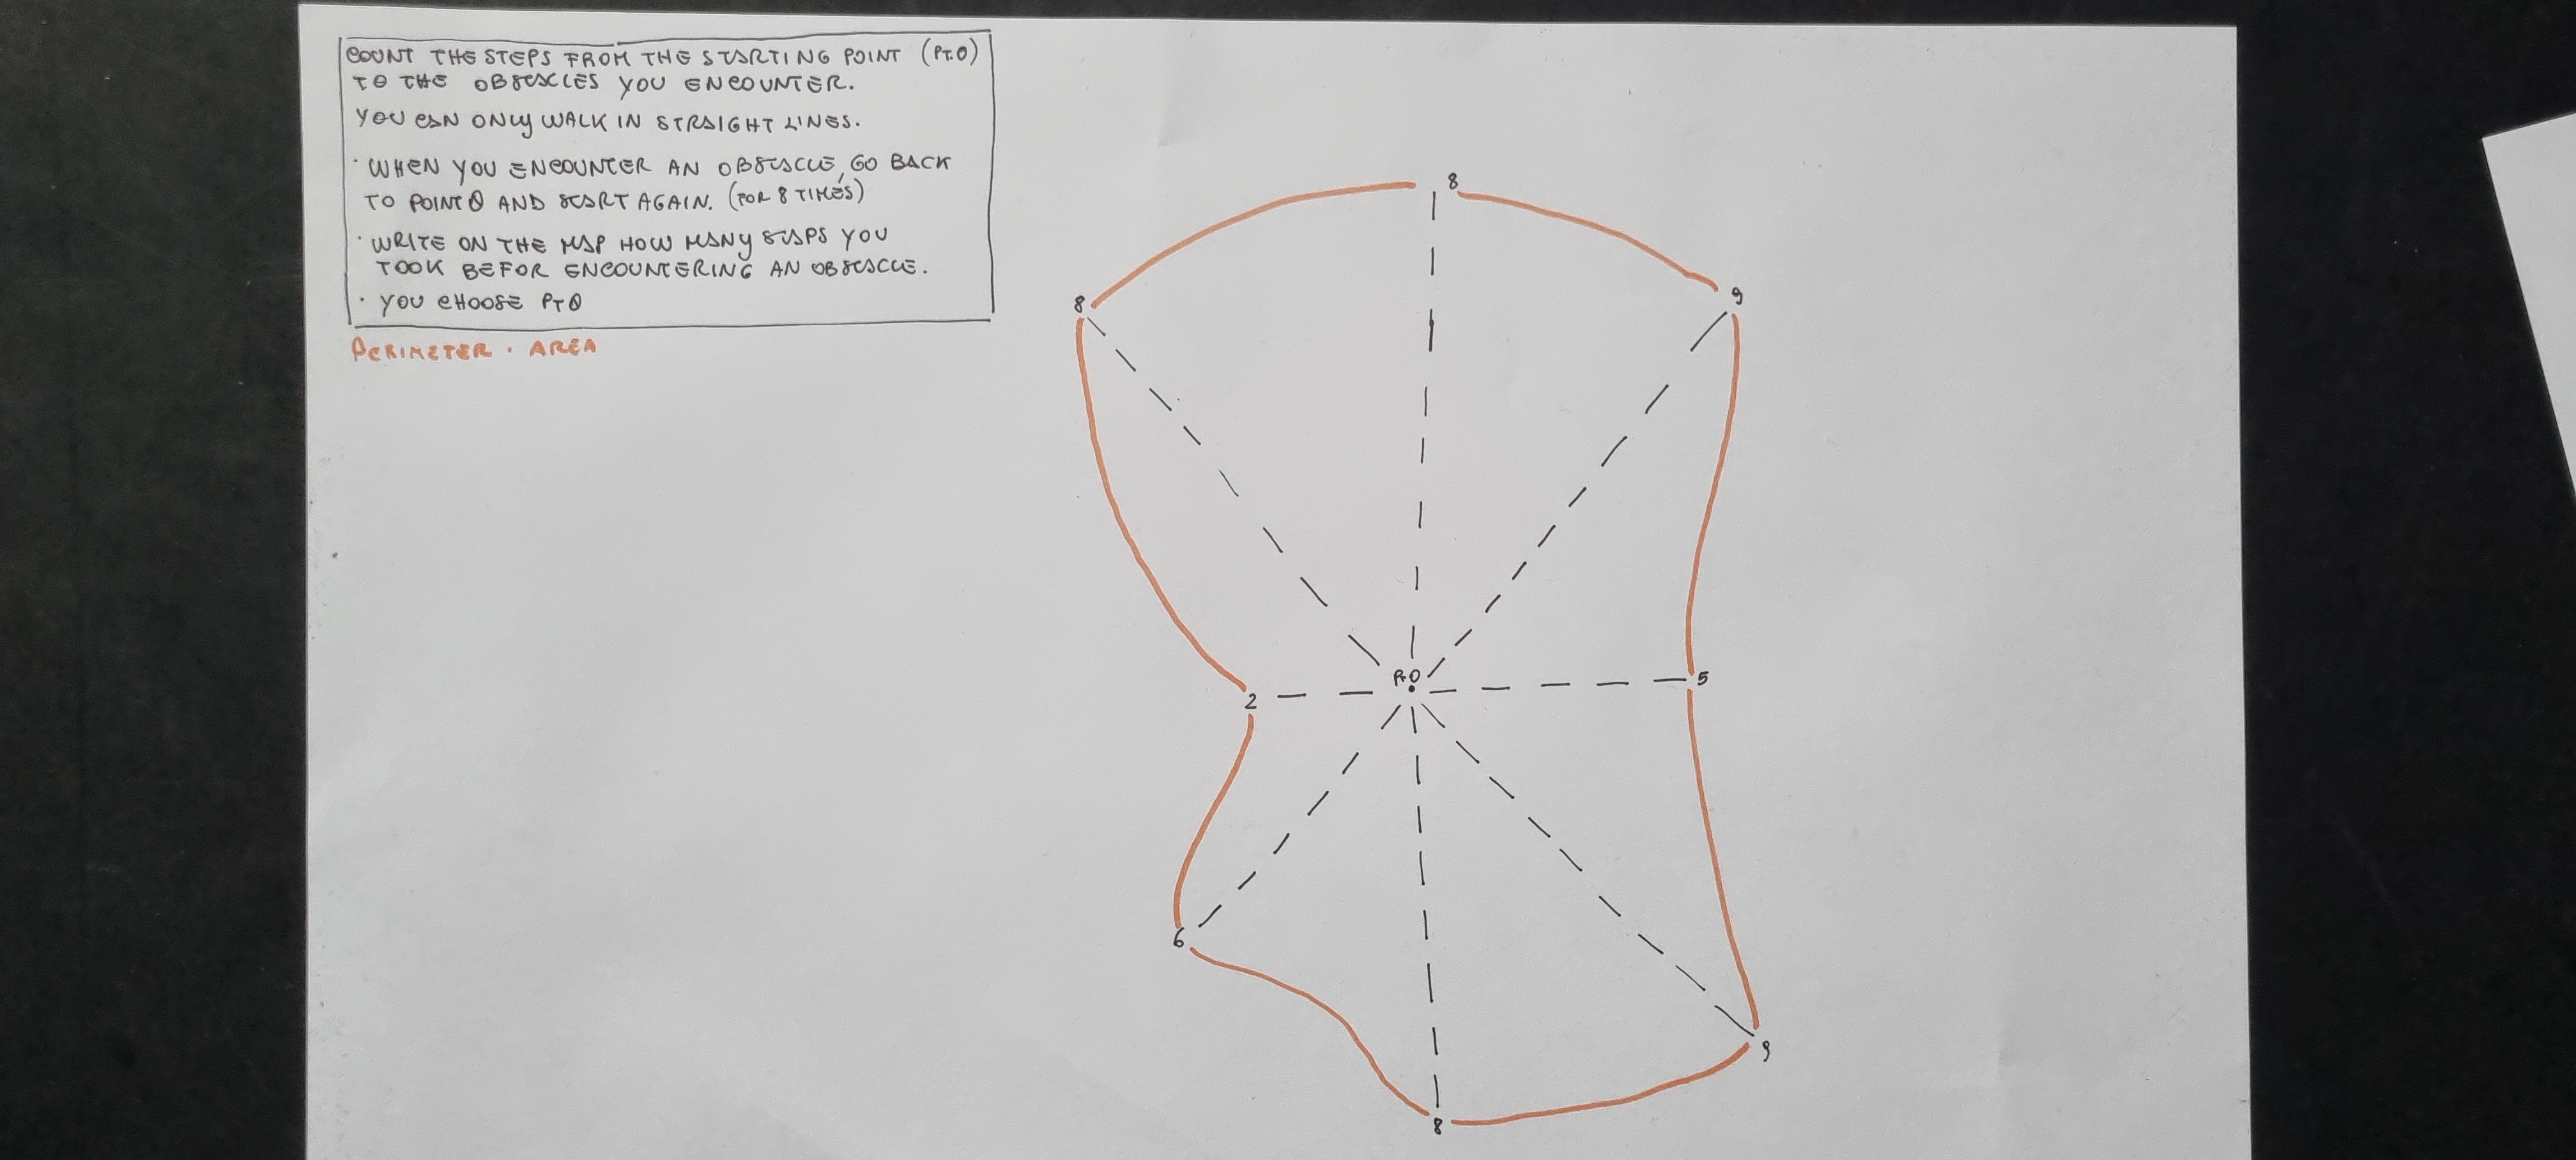 COUNT THE STEPS FROM THE STARTING POINT (PT.0)
TO THE OBSTACLES YOU ENCOUNTER.
YOU CAN ONLY WALK IN STRAIGHT LINES.
· WHEN YOU ENCOUNTER AN OBSTACLE, GO BACK
TO POINT 0 AND START AGAIN. (FOR 8 TIMES)
· WRITE ON THE MAP HOW MANY STEPS YOU
TOOK BEFOR ENCOUNTERING AN OBSTACLE.
· YOU CHOOSE PT0
PERIMETER · AREA
8
9
8
PT0
2
5
6
9
8